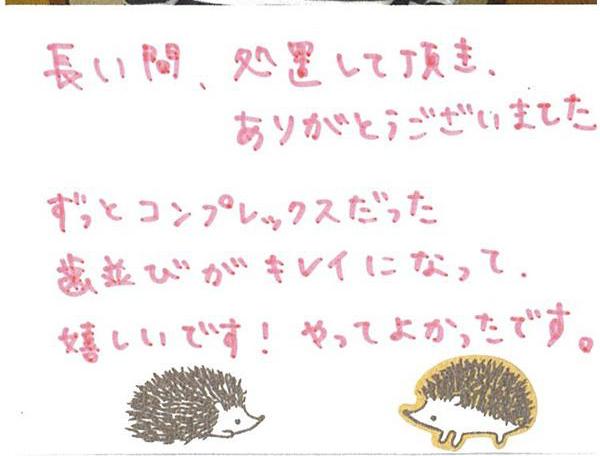 長い間、処置して頂き、
ありがとうございました
ずっとコンプレックスだった
歯並びがキレイになって、
嬉しいです！やってよかったです。